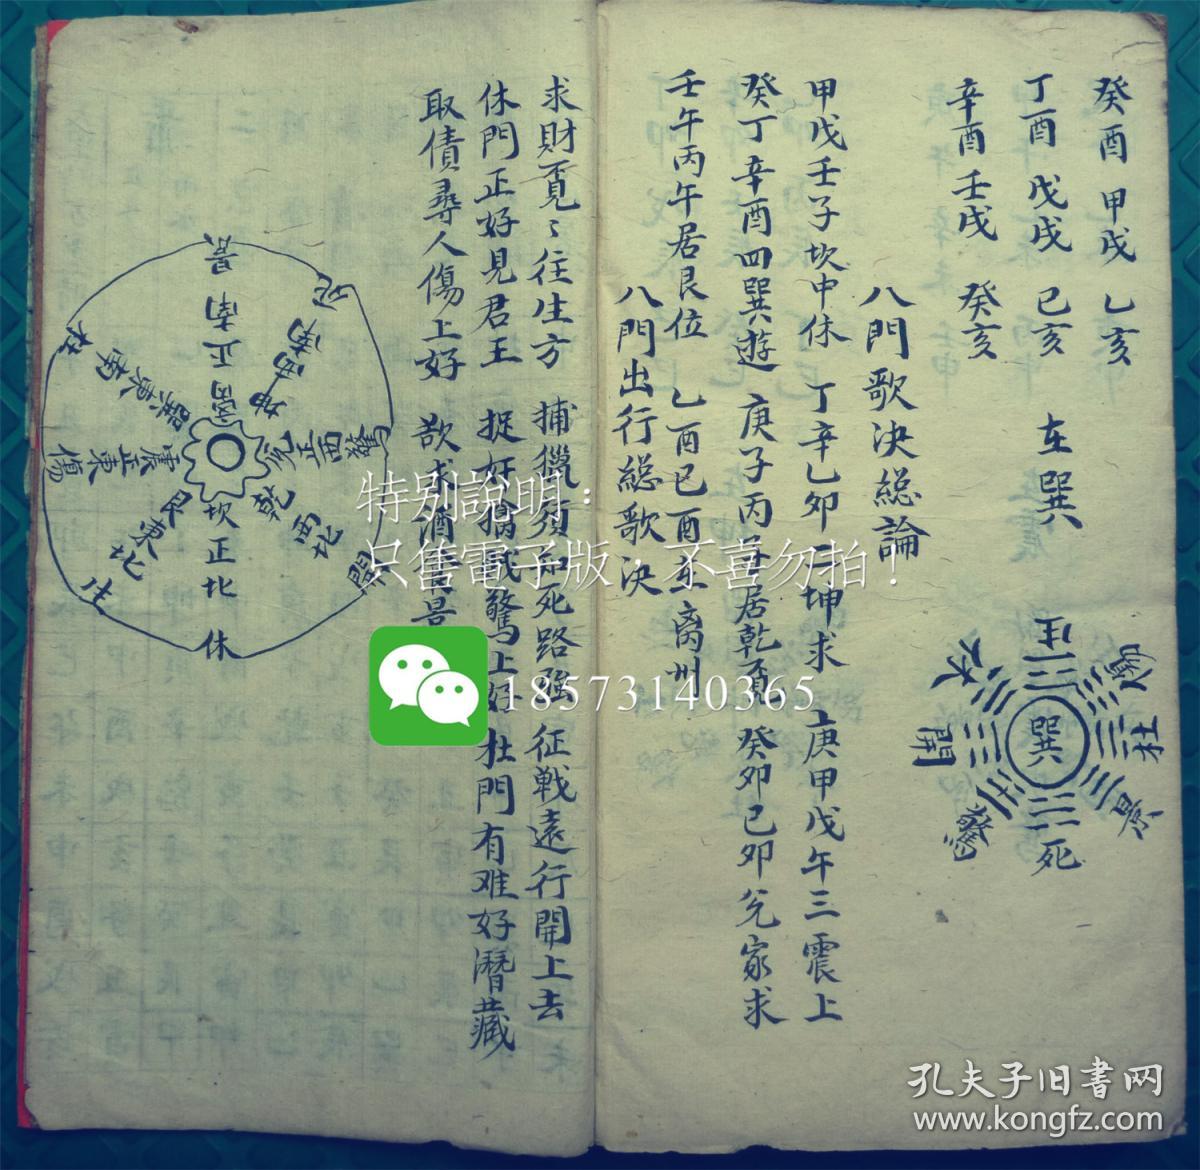 癸酉 甲戌 乙亥
丁酉 戊戌 己亥 在巽
辛酉 壬戌 癸亥
八門歌决総論
甲戊壬子坎中休 丁辛乙卯 坤求 庚甲戊午三震上
癸丁辛酉四巽遊 庚子丙 居乾覓 癸卯己卯兌家求
壬午丙午居艮位 乙酉巳酉 离州
八門出行総歌决
求財覔〻往生方 捕獵須知死路強 征戦遠行開上去
休門正好見君王 捉奸 驚上好 杜門有难好潛藏
取債尋人傷上好 欲求酒 景
巽
生
傷
杜
景
死
驚
開
休
景 南正 离
死 南西 坤
驚 西正 兌
開 西北 乾
休 正北 坎
生 東北 艮
傷 東正 震
杜 東南 巽
特别說明：
只售電子版，不喜勿拍！
18573140365
孔夫子旧書网
www.kongfz.com